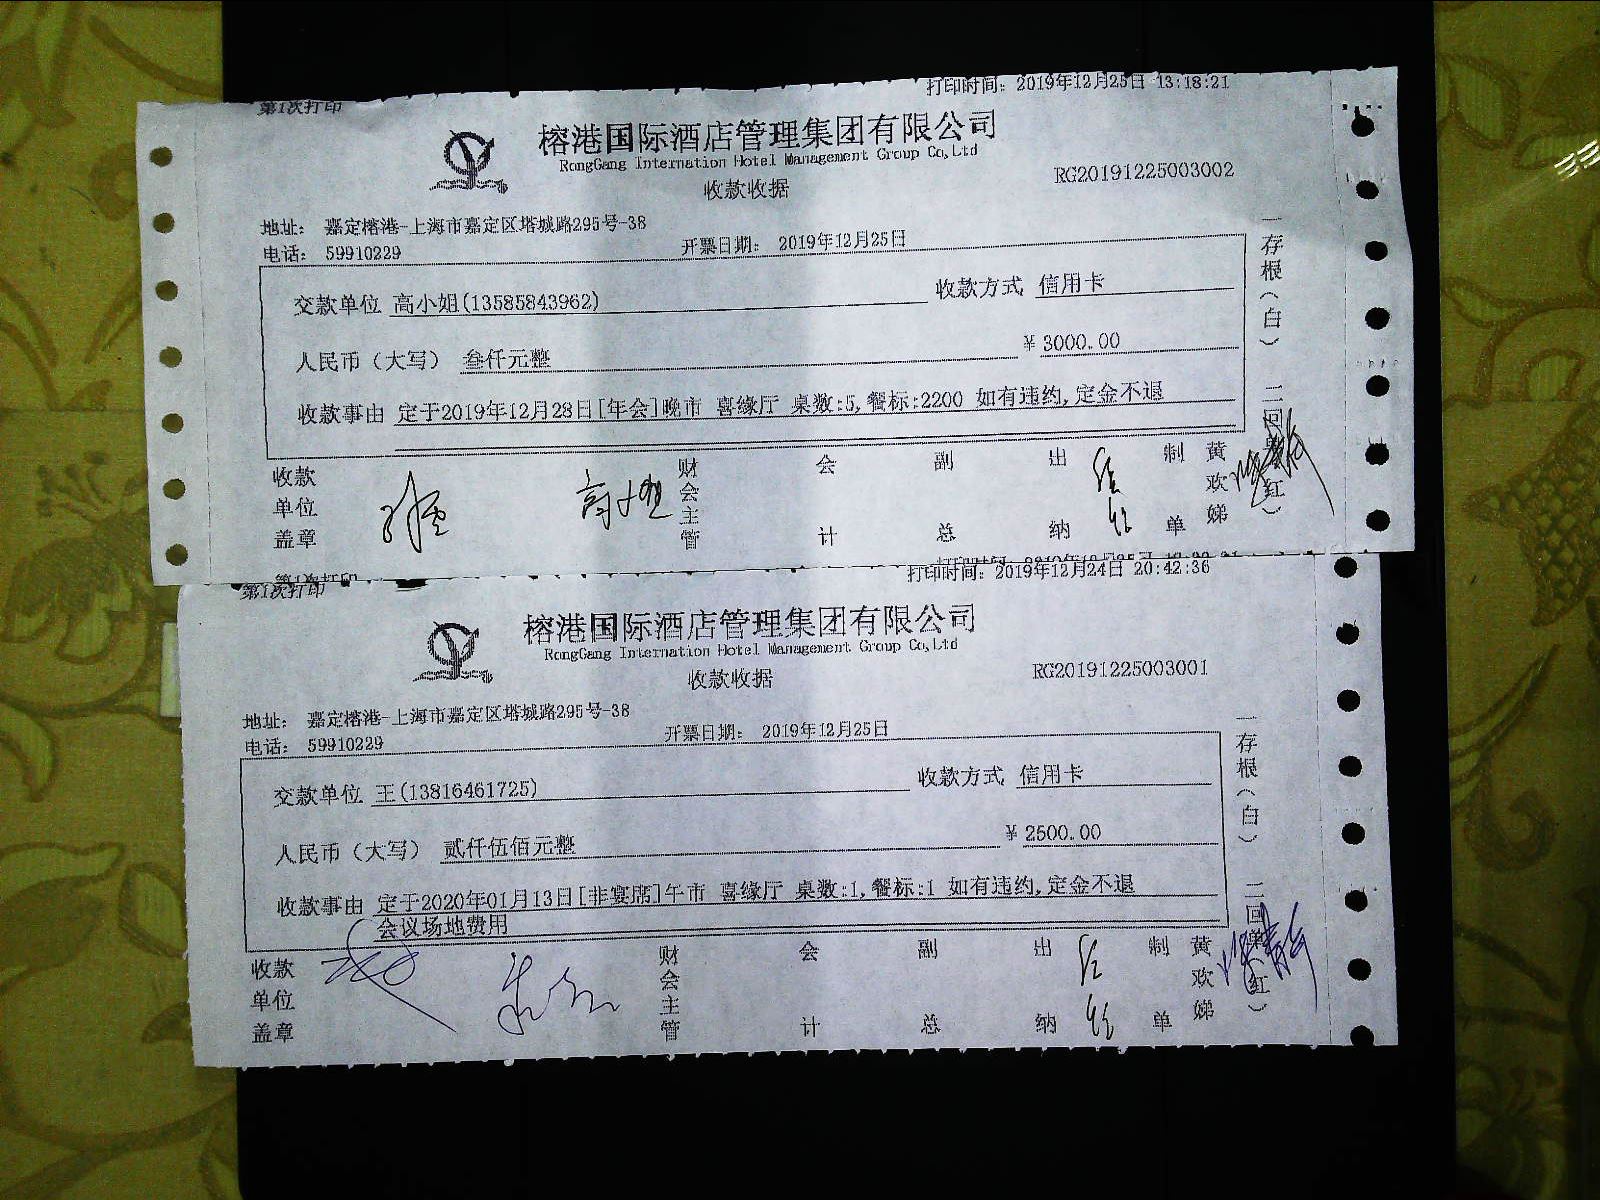 第1次打印
打印时间: 2019年12月25日 13:18:21
榕港国际酒店管理集团有限公司
RongGang Internation Hotel Management Group Co,Ltd
收款收据
RG20191225003002
地址: 嘉定榕港-上海市嘉定区塔城路295号-38
电话: 59910229
开票日期: 2019年12月25日
交款单位 高小姐(13585843962)
收款方式 信用卡
人民币(大写) 叁仟元整
¥ 3000.00
收款事由 定于2019年12月28日[年会]晚市 喜缘厅 桌数:5,餐标:2200 如有违约,定金不退
一存根(白) 二回单(红)
收款单位盖章
财会主管
会计
副总
出纳
制单
黄欢娣
第1次打印
打印时间: 2019年12月24日 20:42:36
榕港国际酒店管理集团有限公司
RongGang Internation Hotel Management Group Co,Ltd
收款收据
RG20191225003001
地址: 嘉定榕港-上海市嘉定区塔城路295号-38
电话: 59910229
开票日期: 2019年12月25日
交款单位 王(13816461725)
收款方式 信用卡
人民币(大写) 贰仟伍佰元整
¥ 2500.00
收款事由 定于2020年01月13日[非宴席]午市 喜缘厅 桌数:1,餐标:1 如有违约,定金不退
会议场地费用
一存根(白) 二回单(红)
收款单位盖章
财会主管
会计
副总
出纳
制单
黄欢娣